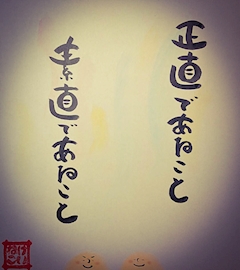 正直であること
素直であること